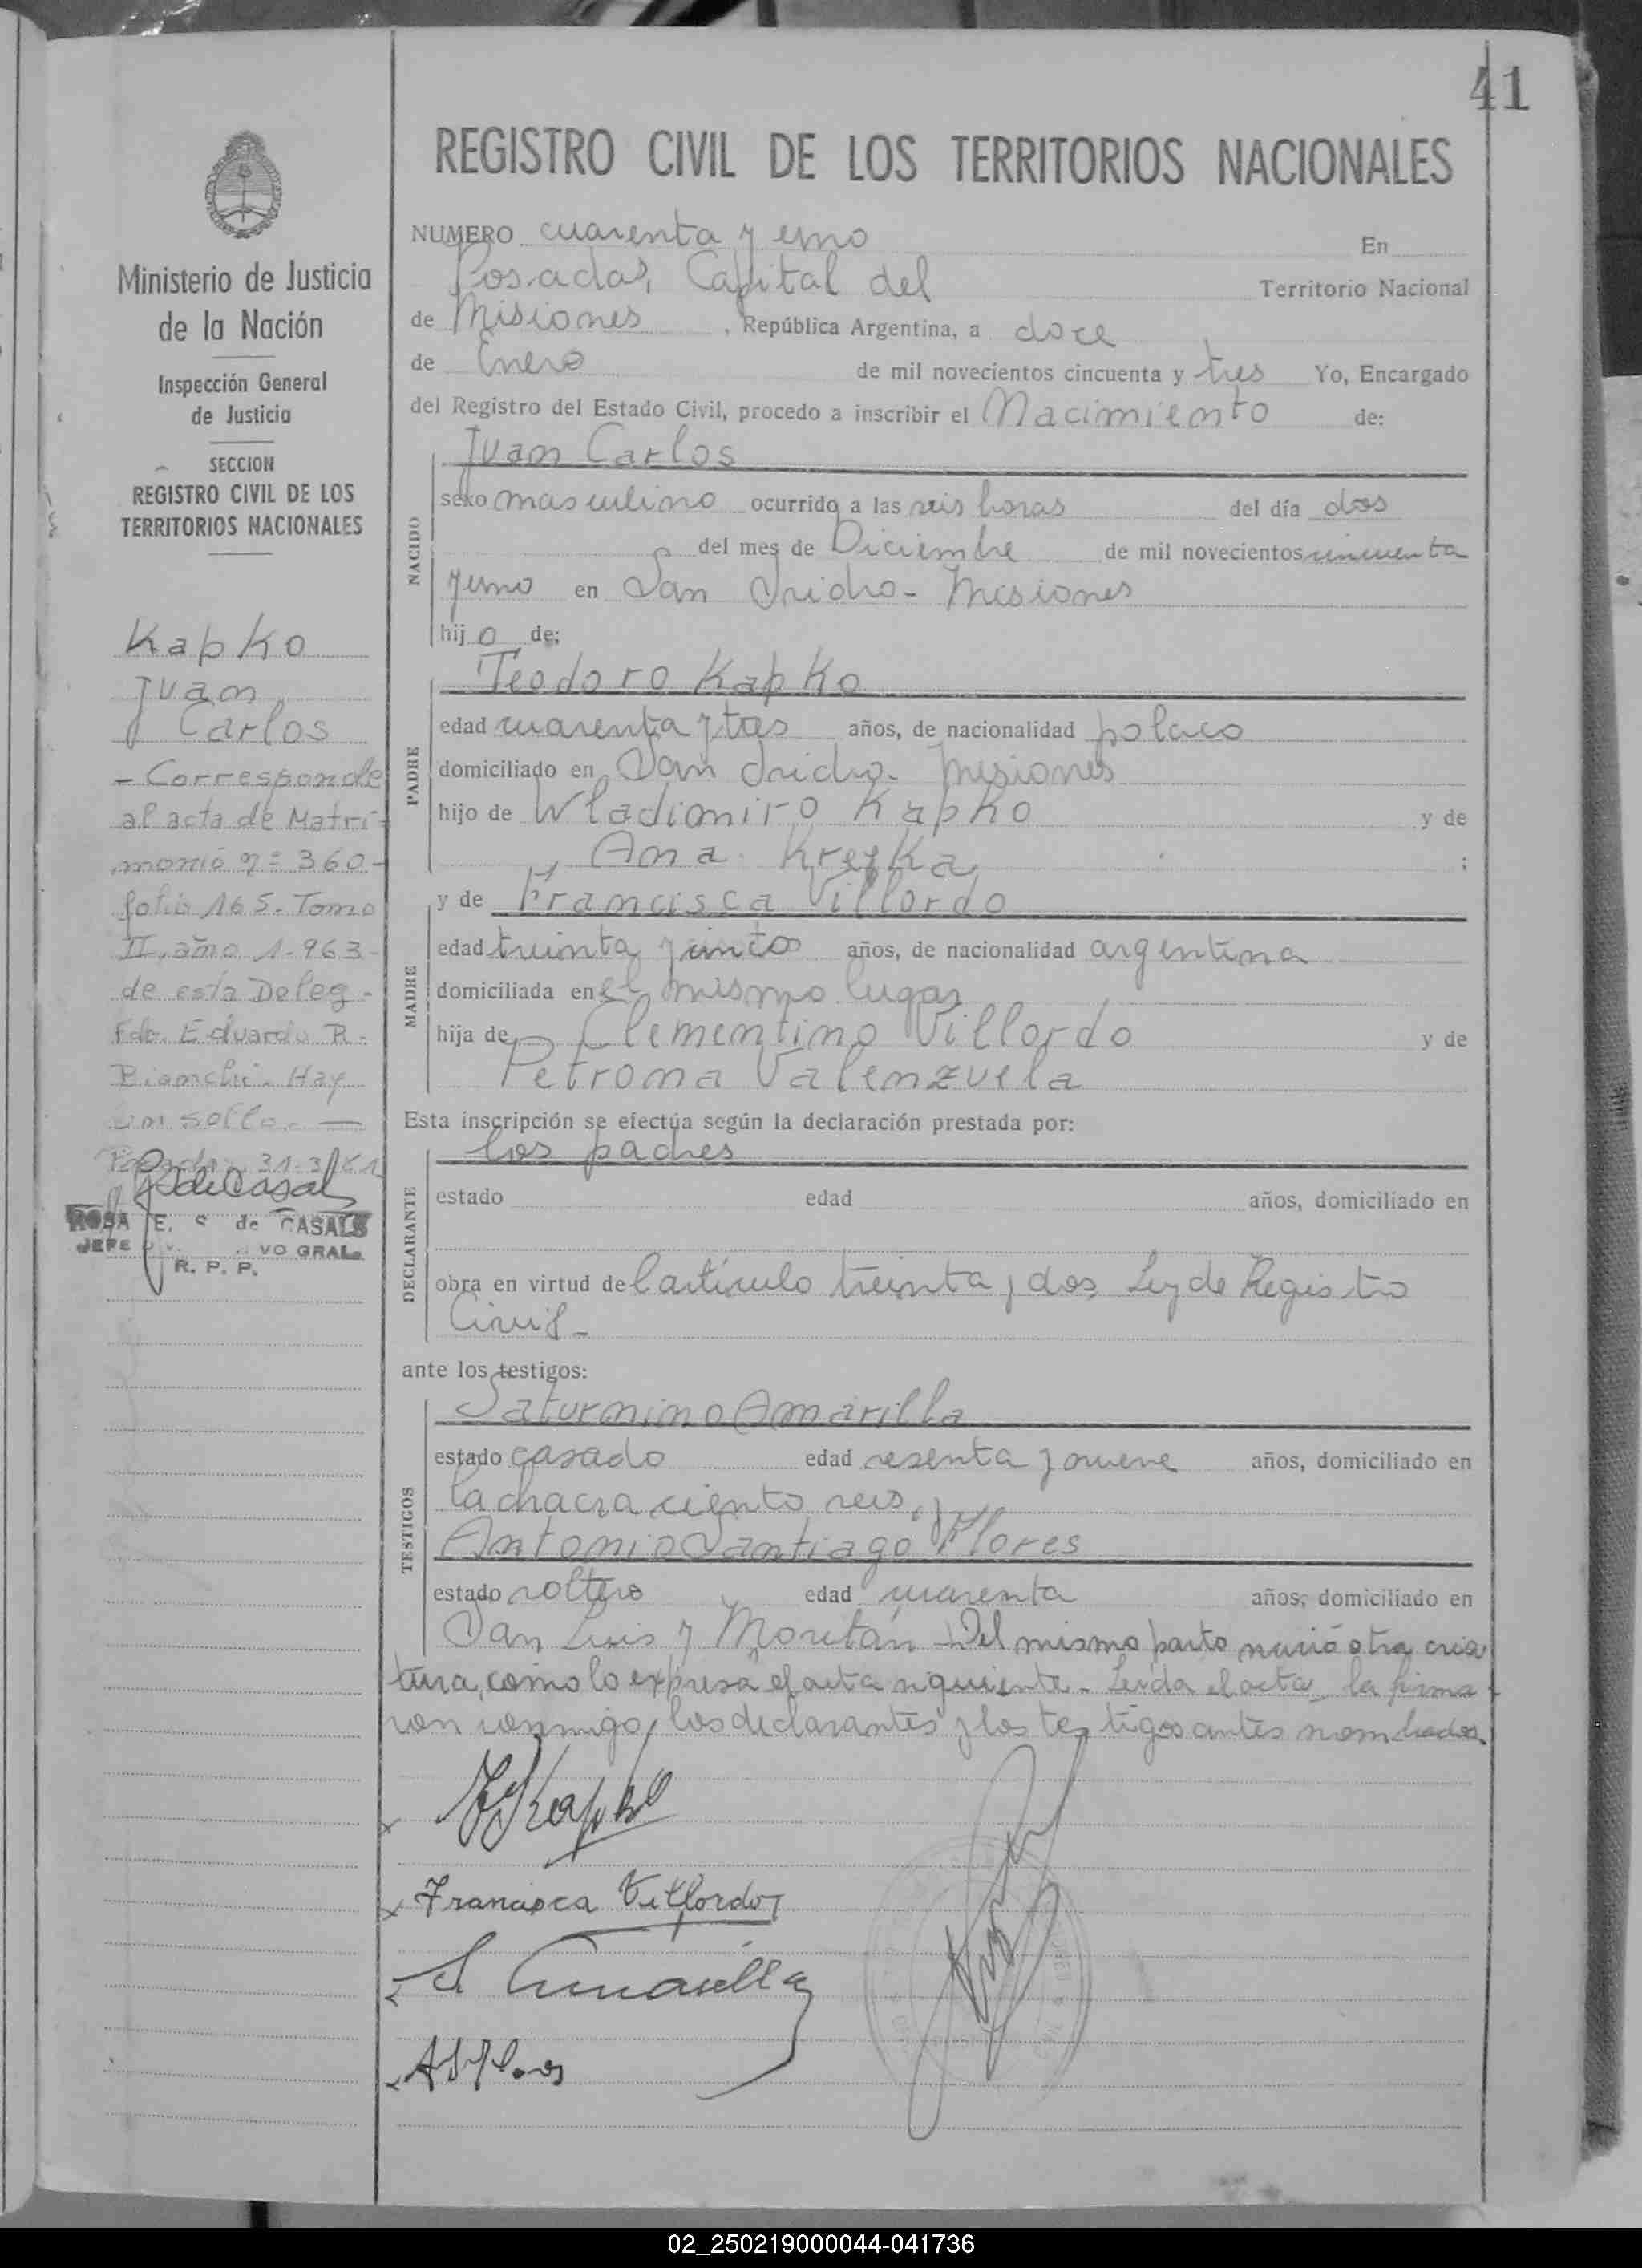 41
REGISTRO CIVIL DE LOS TERRITORIOS NACIONALES
NUMERO cuarenta y uno En
Posadas, Capital del Territorio Nacional
de Misiones, República Argentina, a doce
de Enero de mil novecientos cincuenta y tres Yo, Encargado
del Registro del Estado Civil, procedo a inscribir el Nacimiento de:
NACIDO
Juan Carlos
sexo masculino ocurrido a las seis horas del día dos
del mes de Diciembre de mil novecientos cincuenta
y uno en San Isidro - Misiones
hijo de:
PADRE
Teodoro Kapko
edad cuarenta y tres años, de nacionalidad polaco
domiciliado en San Isidro - Misiones
hijo de Wladimiro Kapko y de
Ana ;
MADRE
y de Francisca Villordo
edad treinta y cinco años, de nacionalidad argentina
domiciliada en el mismo lugar
hija de Clementino Villordo y de
Petrona Valenzuela
Esta inscripción se efectúa según la declaración prestada por:
DECLARANTE
los padres
estado edad años, domiciliado en
obra en virtud del artículo treinta y dos Ley de Registro
Civil -
ante los testigos:
TESTIGOS
Saturnino Amarilla
estado casado edad sesenta y nueve años, domiciliado en
la chacra ciento seis, y
Antonio Santiago Flores
estado soltero edad cuarenta años, domiciliado en
San Luis y Moritán - Del mismo parto nació otra cria
tura, como lo expresa el acta siguiente. Leída el acta, la firma
ron conmigo, los declarantes y los testigos antes nombrados.
T Kapko
Francisca Villordo
S Amarilla
A S Flores
Ministerio de Justicia
de la Nación
Inspección General
de Justicia
SECCION
REGISTRO CIVIL DE LOS
TERRITORIOS NACIONALES
Kapko
Juan
Carlos
- Corresponde
al acta de Matri-
monio nº 360 -
folio 165. Tomo
II, año 1.963 -
de esta Deleg -
Fdo. Eduardo R.
Bianchi. Hay
un sello. —
Posadas, 31.3.
R de Casals
ROSA E. S de CASALS
JEFE VO GRAL.
R. P. P.
02_250219000044-041736